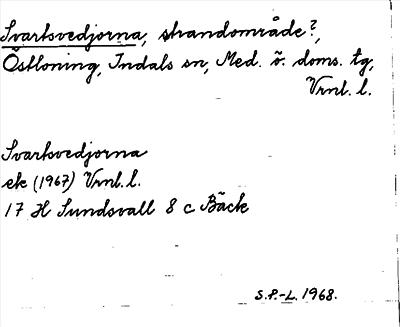 Svartsvedjorna, strandområde?,
Östloning, Indals sn, Med. ö. doms. tg,
Vrnl. l.
Svartsvedjorna
ek (1967) Vrnl. l.
17 H Sundsvall 8 c Bäck
S.P.-L. 1968.